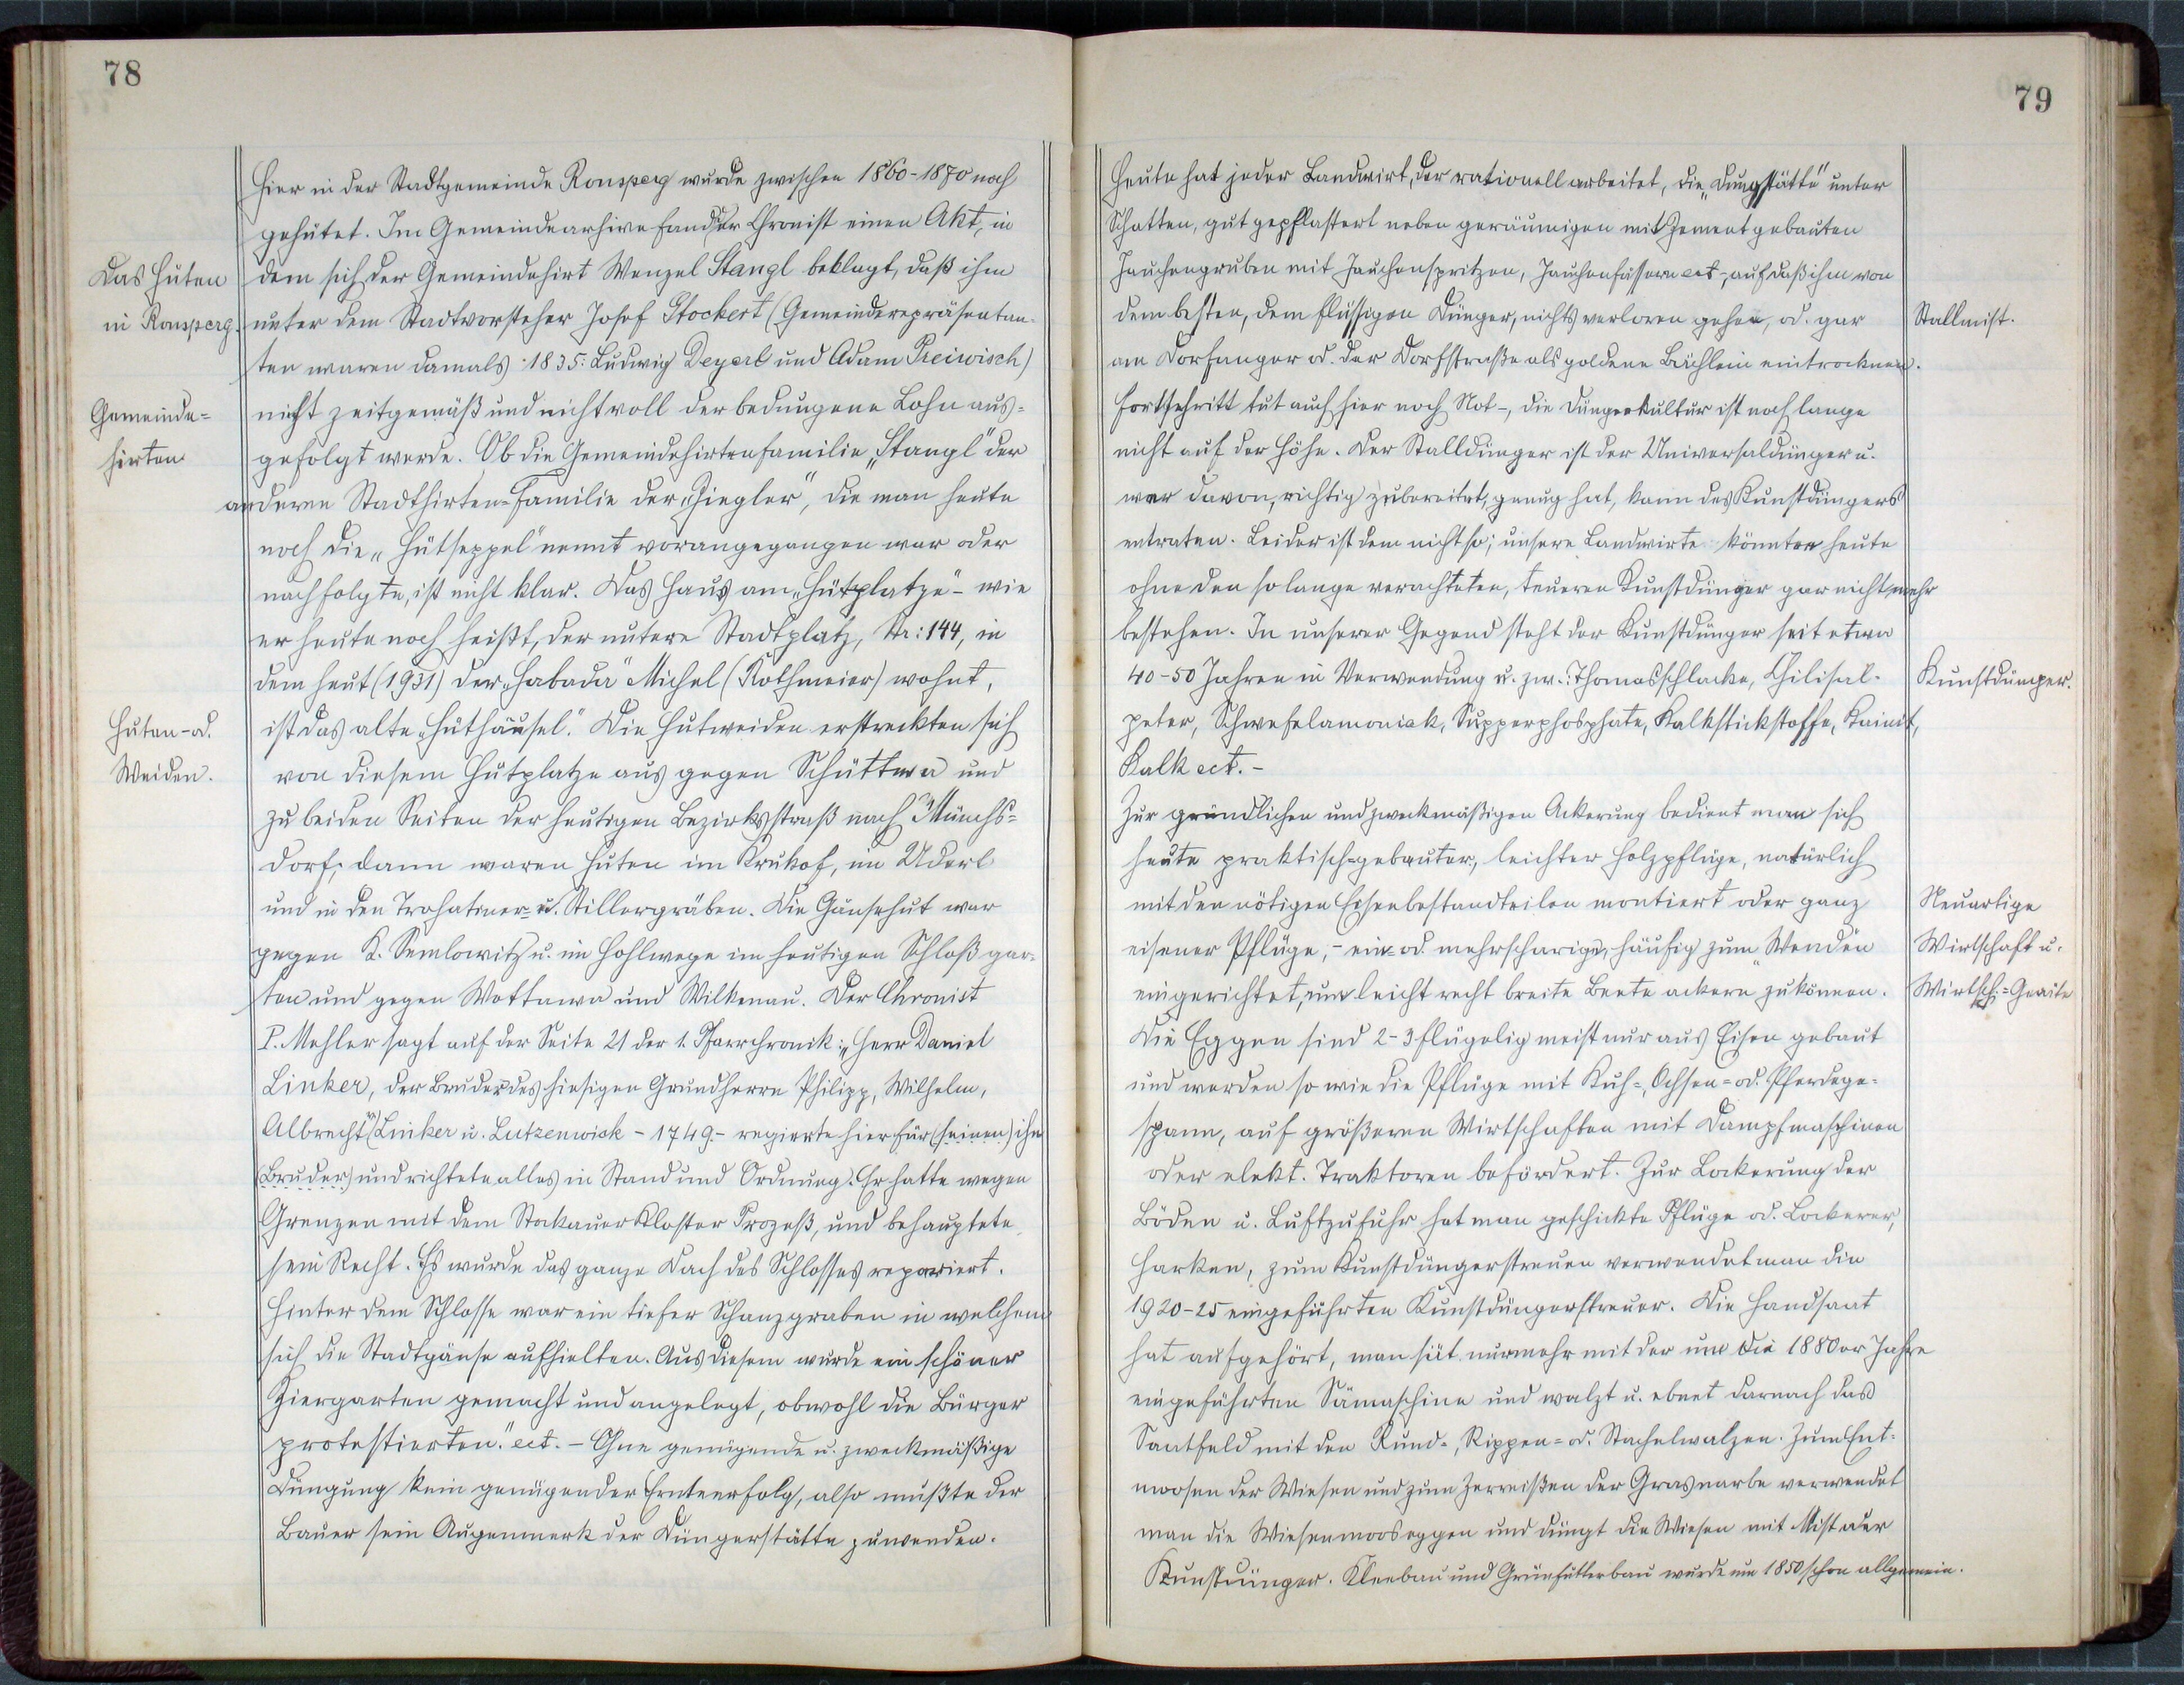 78
Hier in der Stadtgemeinde Ronsperg wurde zwischen 1860-1870 noch
gehütet. Im Gemeindearchive fand der Chronist einen Akt, in
Das Hüten
dem sich der Gemeindehirt Wenzel Stangl beklagt, daß ihm
in Ronsperg.
unter dem Stadtvorsteher Josef Stockert (Gemeinderepräsentan-
ten waren damals 1835: Ludwig Deyerl und Adam Preiwisch)
Gemeinde=
nicht zeitgemäß und nicht voll der bedungene Lohn aus=
hirten
gefolgt werde. Ob die Gemeindehirtenfamilie „Stangl" der
anderen Stadthirten=Familie der „Ziegler", die man heute
noch die „Hütseppel" nennt vorangegangen war oder
nachfolgte, ist nicht klar. Das Haus am „Hütplatze" - wie
er heute noch heißt, der untere Stadtplatz, Nr: 144, in
dem heut (1931) der „Habada" Michel (Rothmeier) wohnt,
Huten - od.
ist das alte „Hüthäusel." Die Hutweiden erstreckten sich
Weiden.
von diesem Hutplatze aus gegen Schüttwa und
zu beiden Seiten der heutigen Bezirksstraß nach Münchs=
dorf; dann waren Huten im Krukof, im Uderl
und in den Trohatiner= u. Stillergräben. Die Gänsehut war
gegen K. Semlowitz u. im Hohlwege im heutigen Schloßgar-
ten und gegen Wottawa und Wilkenau. Der Chronist
P. Mehler sagt auf der Seite 21 der 1. Pfarrchronik: „Herr Daniel
Linker, der Bruder des hiesigen Grundherrn Philipp, Wilhelm,
Albrecht" (Linker u. Lutzenwick - 1749. - regierte hier für (seinen) ihn
(Bruder) und richtete alles in Stand und Ordnung. Er hatte wegen
Grenzen mit dem Stockauer Kloster Prozeß, und behauptete
sein Recht. Es wurde das ganze Dach des Schlosses repariert.
Hinter dem Schlosse war ein tiefer Schanzgraben in welchem
sich die Stadtgänse aufhielten. Aus diesem wurde ein schöner
Ziergarten gemacht und angelegt, obwohl die Bürger
protestierten." ect. - Ohne genügende u. zweckmäßige
Düngung kein genügender Ernteerfolg, also mußte der
Bauer sein Augenmerk der Düngerstätte zuwenden.
79
Heute hat jeder Landwirt, der rationell arbeitet, die „Dungstätte" unter
Schatten, gut gepflastert neben geräumigen mit Zement gebauten
Jauchengruben mit Jauchenspritzen, Jauchenfässern ect -, auf daß ihm von
dem besten, dem flüssigen Dünger, nichts verloren gehen, od. gar
Stallmist.
am Dorfanger od. der Dorfstraße als goldene Bächlein eintrocknen.
Fortschritt tut auch hier noch Not -, die Düngerkultur ist noch lange
nicht auf der Höhe. Der Stalldünger ist der Universaldünger u.
wer davon, richtig zubereitet, genug hat, kann des Kunstdüngers
entraten. Leider ist dem nicht so; unsere Landwirte könnten heute
ohne den so lange verachteten, teueren Kunstdünger gar nicht mehr
bestehen. In unserer Gegend steht der Kunstdünger seit etwa
40-50 Jahren in Verwendung u. zw.: Thomasschlacke, Chilisal-
Kunstdünger.
peter, Schwefelamoniak, Supperphosphate, Kalkstickstoffe, Kainit,
Kalk ect. -
Zur gründlichen und zweckmäßigen Ackerung bedient man sich
heute praktisch=gebauter, leichter Holzpflüge, natürlich
mit den nötigen Eisenbestandteilen montiert oder ganz
Neuartige
eisener Pflüge, - ein= od. mehrscharige, häufig zum „Wenden
Wirtschaft u.
eingerichtet, um leicht recht breite Beete ackern zu können.
Wirtsch.=Geräte
Die Eggen sind 2-3 flügelig meist nur aus Eisen gebaut
und werden so wie die Pflüge mit Kuh=, Ochsen= od. Pferdege-
spann, auf größeren Wirtschaften mit Dampfmaschinen
oder elekt. Traktoren befördert. Zur Lockerung der
Böden u. Luftzufuhr hat man geschickte Pflüge od. Lockerer,
Harken, zum Kunstdüngerstreuen verwendet man die
1920-25 eingeführten Kunstdüngerstreuer. Die Handsaat
hat aufgehört, man sät nurmehr mit der um die 1880er Jahre
eingeführten Sämaschine und walzt u. ebnet darnach das
Saatfeld mit den Rund-, Rippen= od. Stachelwalzen. Zum Ent-
moosen der Wiesen und zum Zerreißen der Grasnarbe verwendet
man die Wiesenmooseggen und düngt die Wiesen mit Mist oder
Kunstdünger. Kleebau und Grünfutterbau wurde um 1850 schon allgemein.